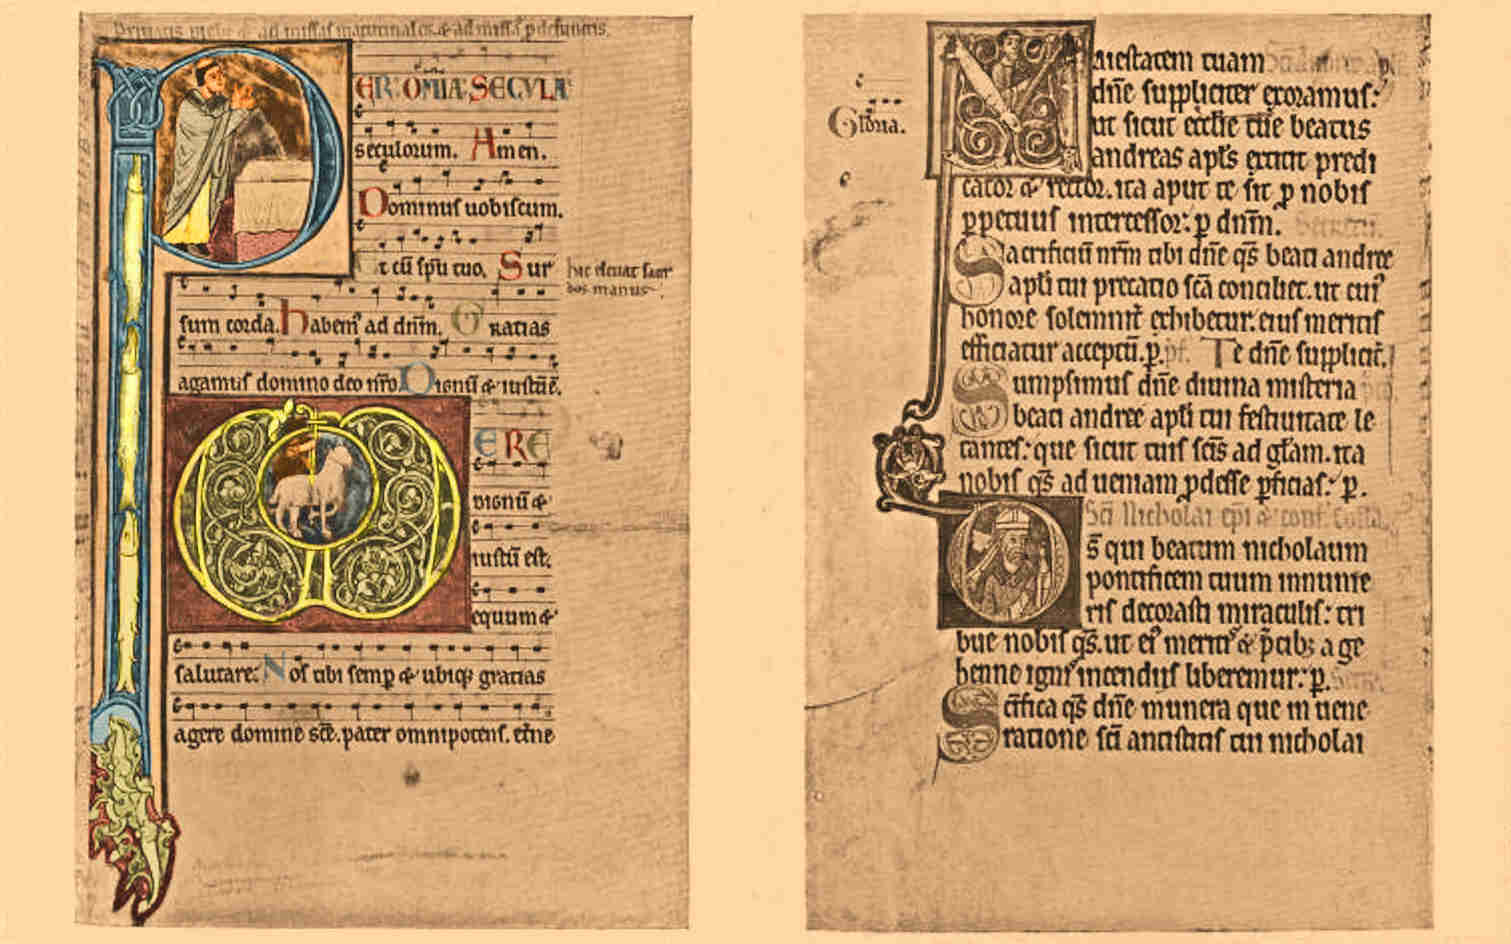 Prefatio in die & ad missas matutinales & ad missā p defunctis.
PER OMĪA SECVLA
seculorum. Amen.
Dominus uobiscum.
Et cū spū tuo. Sur
hic eleuat sacer
dos manus
sum corda. habemꝰ ad dnm̄. Gratias
agamus domino deo nr̄o Dignū & iustū ē.
VERE
dignū &
iustū est.
equum &
salutare: Nos tibi semp & ubiqꝫ gratias
agere domine scē. pater omnipotens. etr̄ne
Gloria.
Maiestatem tuam
dn̄e suppliciter exoramus:
ut sicut eccl̄ie tue beatus
andreas apl̄s extitit predi
cator & rector. ita aput te sit p nobis
ppetuus intercessor: p dnm̄. Secreta.
Sacrificiū nr̄m tibi dn̄e qs̄ beati andree
apl̄i tui precatio scā conciliet. ut cuiꝰ
honore solemnit̄ exhibetur. eius meritis
efficiatur acceptū. p. pf. Te dn̄e supplicit̄.
Sumpsimus dn̄e diuina misteria
beati andree apl̄i tui festiuitate le
tantes: que sicut tuis sc̄is ad gl̄am. ita
nobis qs̄ ad ueniam pdesse pficias: p.
Sc̄i Nicholai ep̄i & conf. Colla.
Ds̄ qui beatum nicholaum
pontificem tuum innume
ris decorasti miraculis: tri
bue nobis qs̄. ut eiꝰ meritꝭ & p̄cibꝫ a ge
henne ignis incendiis liberemur: p.
Sc̄ifica qs̄ dn̄e munera que in uene
ratione sc̄i antistitis tui nicholai